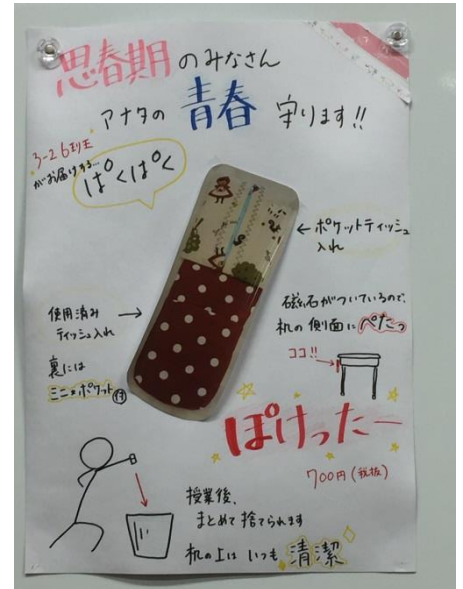 思春期のみなさん
アナタの青春守ります!!
3-2 6班
がお届けする…
ぱくぱく
←ポケットティッシュ
入れ
使用済み→
ティッシュ入れ
裏には
ミニ×ポケット付
磁石がついているので、
机の側面にぺたっ
ココ!!
ぽけったー
700円(税抜)
授業後、
まとめて捨てられます
机の上はいつも清潔